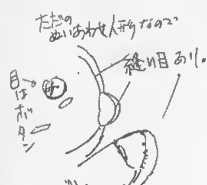 ただの
ぬいあわせ人形なので
縫い目あり。
目は
ボタン